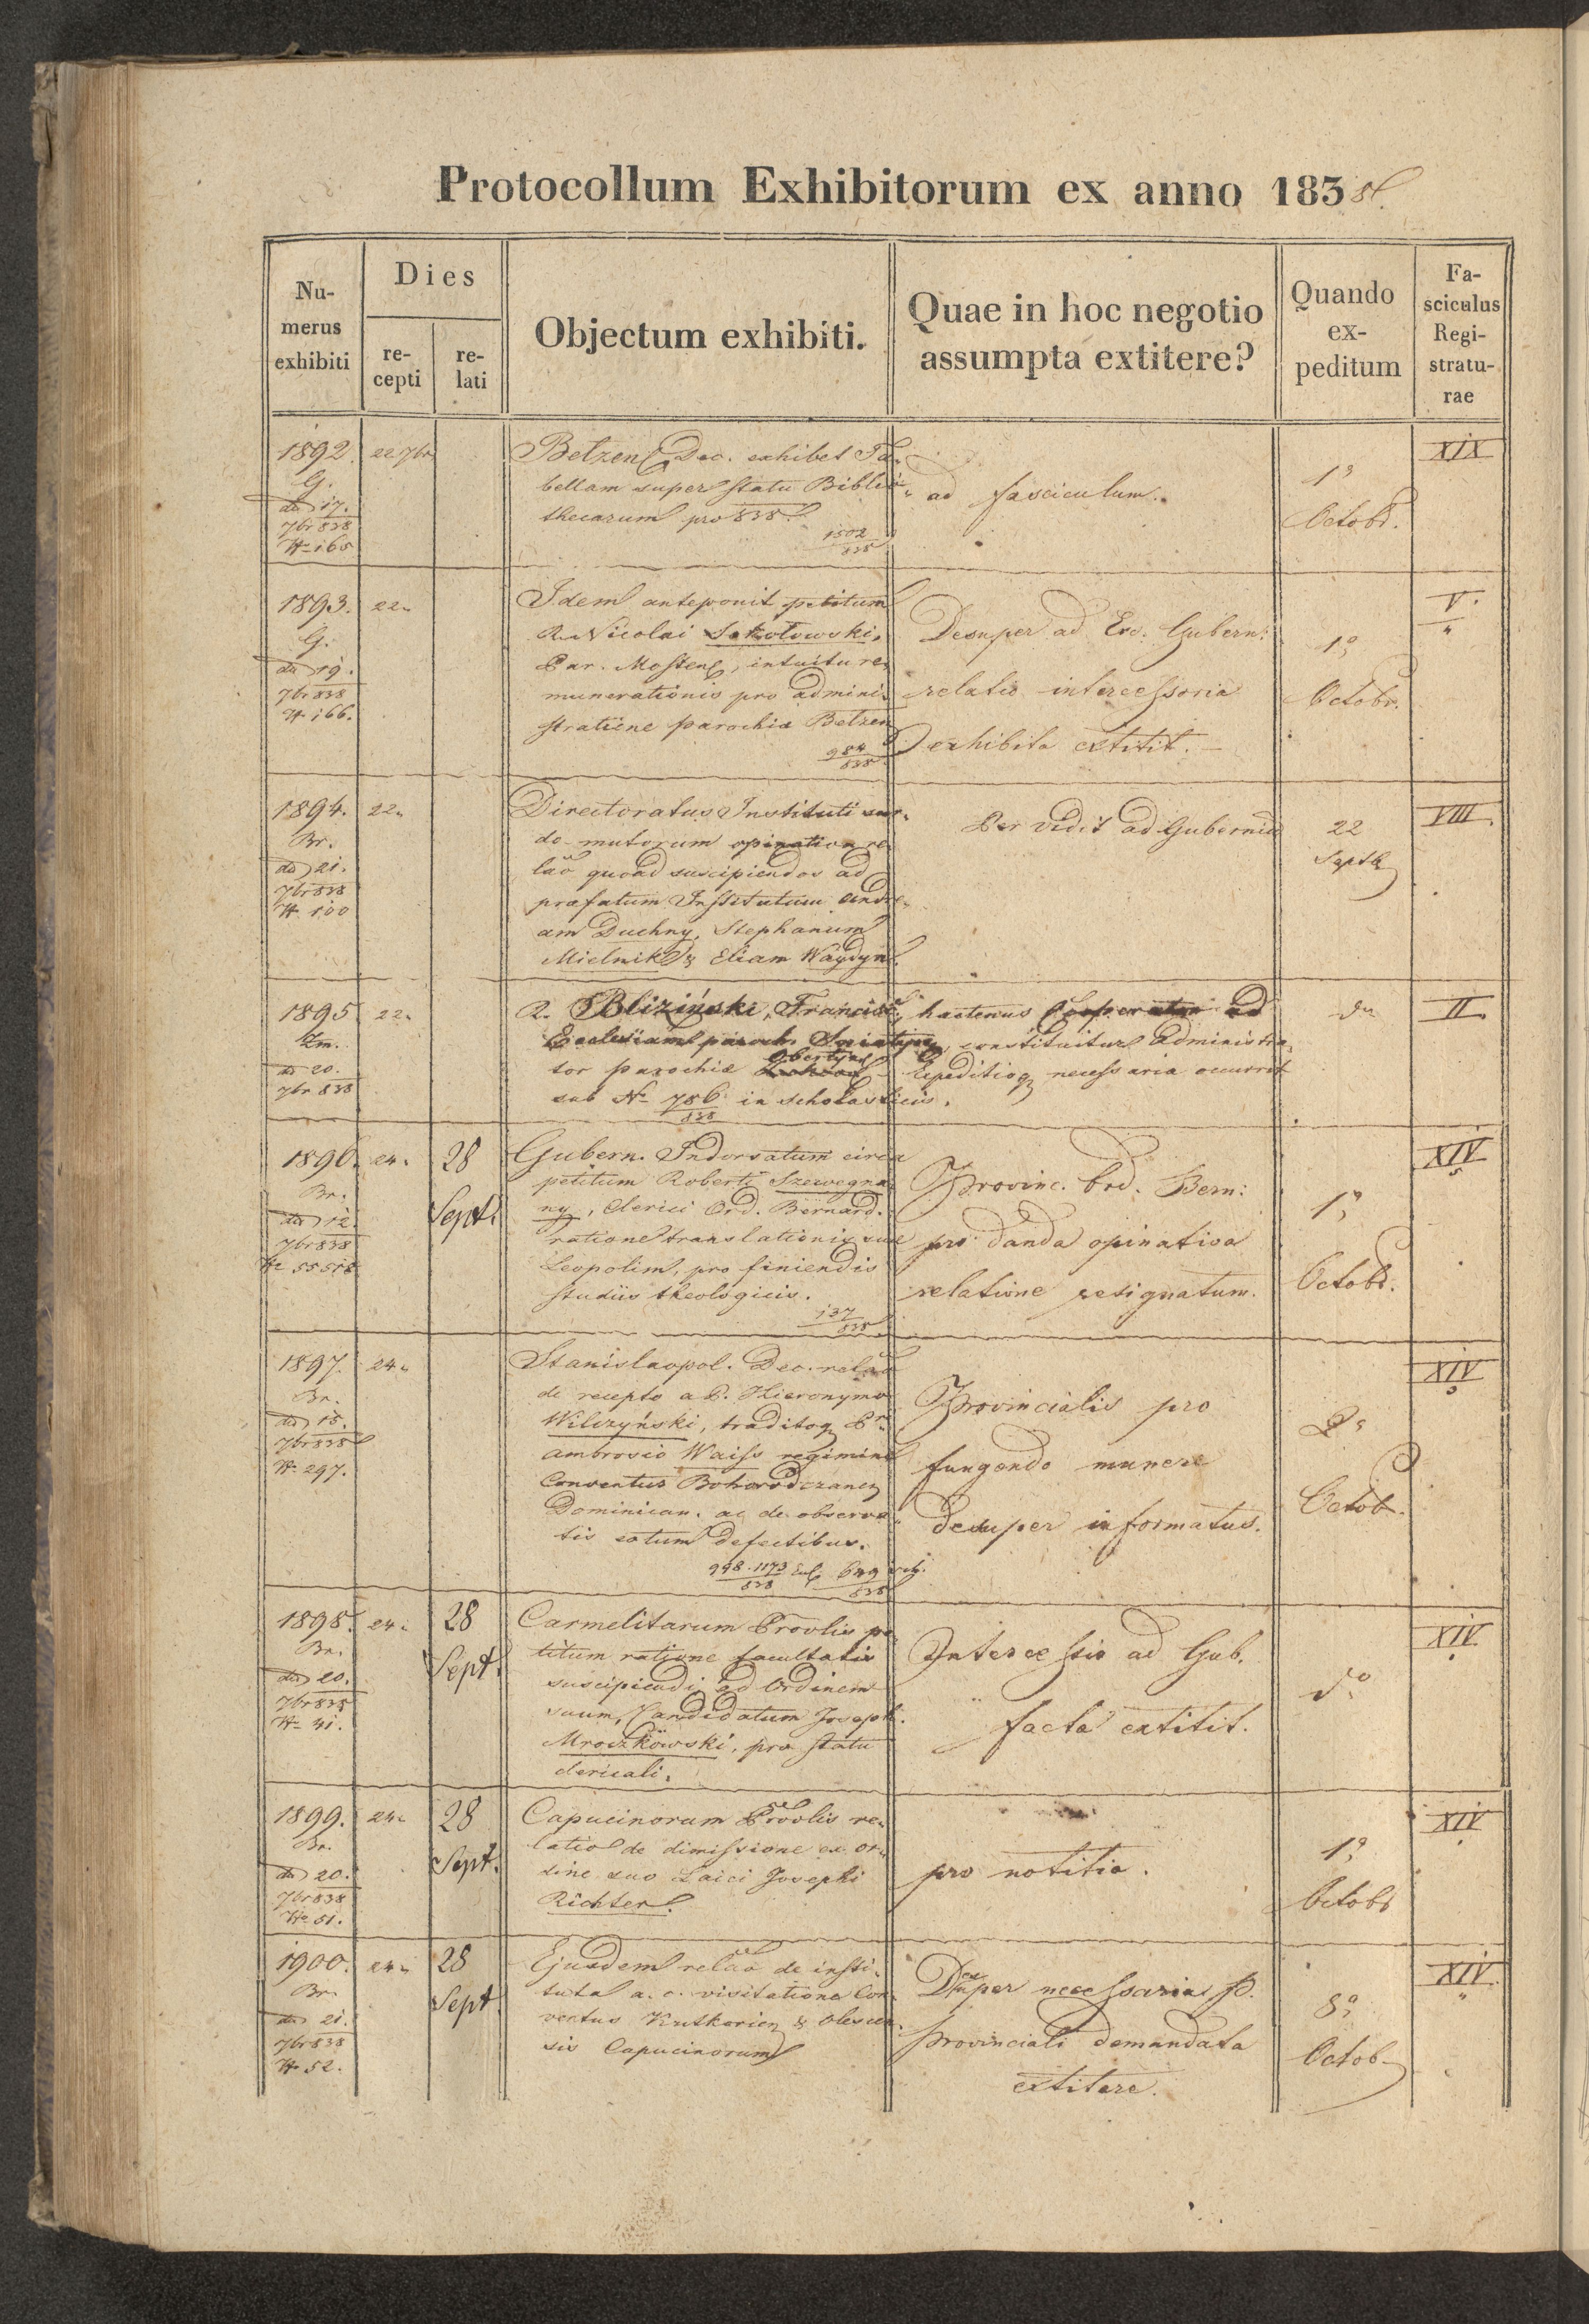 Protocollum Exhibitorum ex anno 1838.
Numerus exhibiti
Dies
recepti
relati
Objectum exhibiti.
Quae in hoc negotio assumpta extitere?
Quando expeditum
Fasciculus Registraturae
1892. 22 7br
G.
dto 17.
7br 838
No 165
Betzen. Dec. exhibet Ta-
bellam super statu Biblio-
thecarum pro 838.
1502
838
ad fasciculum.
1a
Octobr.
XIX
1893. 22.
G.
dto 19.
7br 838
No 166.
Idem anteponit petitum
R. Nicolai Sokołowski,
Par. Mosten, intuitu re-
munerationis pro admini-
stratione parochiæ Betzen
984
838
Desuper ad Exc. Gubern:
relatio intercessoria
exhibita extitit. —
1a
Octobr.
V.
1894. 22.
Br.
dto 21.
7br 838
No 100
Directoratus Instituti sur-
do-mutorum opinativa re-
lao quoad suscipiendos ad
præfatum Institutum Andre-
am Duchny, Stephanum
Mielnik & Eliam Waydyn.
Per vidit ad Gubernium
22
Septb
VIII.
1895. 22.
Zm.
dto 20.
7br 838
R. Bliziński, Francisc. hactenus Cooperator ad
Ecclesiam paroch. Sniatyn, constituitur Administra-
tor parochiæ Obertyn Expeditioq necessaria occurrit
sub No 786 in scholasticis.
838
do
II.
1896. 24. 28
Sept.
Br.
dto 12.
7br 838
No 55518
Gubern. Indorsatum circa
petitum Roberti Szerwegna-
ny, Clerici Ord. Bernard.
ratione translationis suæ
Leopolim, pro finiendis
studiis theologicis.
137
838
Provinc. Ord. Bern:
pro danda opinativa
relatione resignatum.
1a
Octobr.
XIV
1897. 24.
Br.
dto 15.
7br 838
No 297.
Stanislaopol. Dec. relao
de recepto a P. Hieronymo
Wilczyński, traditoq Pr.
Ambrosio Waiss regimine
Conventus Bohorodczanen
Dominican. ac de observa-
tis eotum defectibus.
998. 1173 Eul. 649
838 838
Provincialis pro
fungendo munere
desuper informatus.
2a
Octob.
XIV
1898. 24. 28
Sept.
Br.
dto 20.
7br 838
No 41.
Carmelitarum Provlis pe-
titum ratione facultatis
suscipiendi ad Ordinem
suum, Candidatum Joseph.
Mroczkowski, pro statu
clericali.
Intercessio ad Gub.
facta extitit.
do
XIV.
1899. 24. 28
Sept.
Br.
dto 20.
7br 838
No 51.
Capucinorum Provlis re-
latio de dimissione ex or-
dine suo Laici Josephi
Richter.
pro notitia.
1a
Octobr
XIV
1900. 24. 28
Sept
Br.
dto 21.
7br 838
No 52.
Ejusdem relao de insti-
tuta a. c. visitatione Con-
ventus Kutkorien & Olescen-
sis Capucinorum
Desuper necessaria P.
Provinciali demandata
extitere.
8a
Octob
XIV.